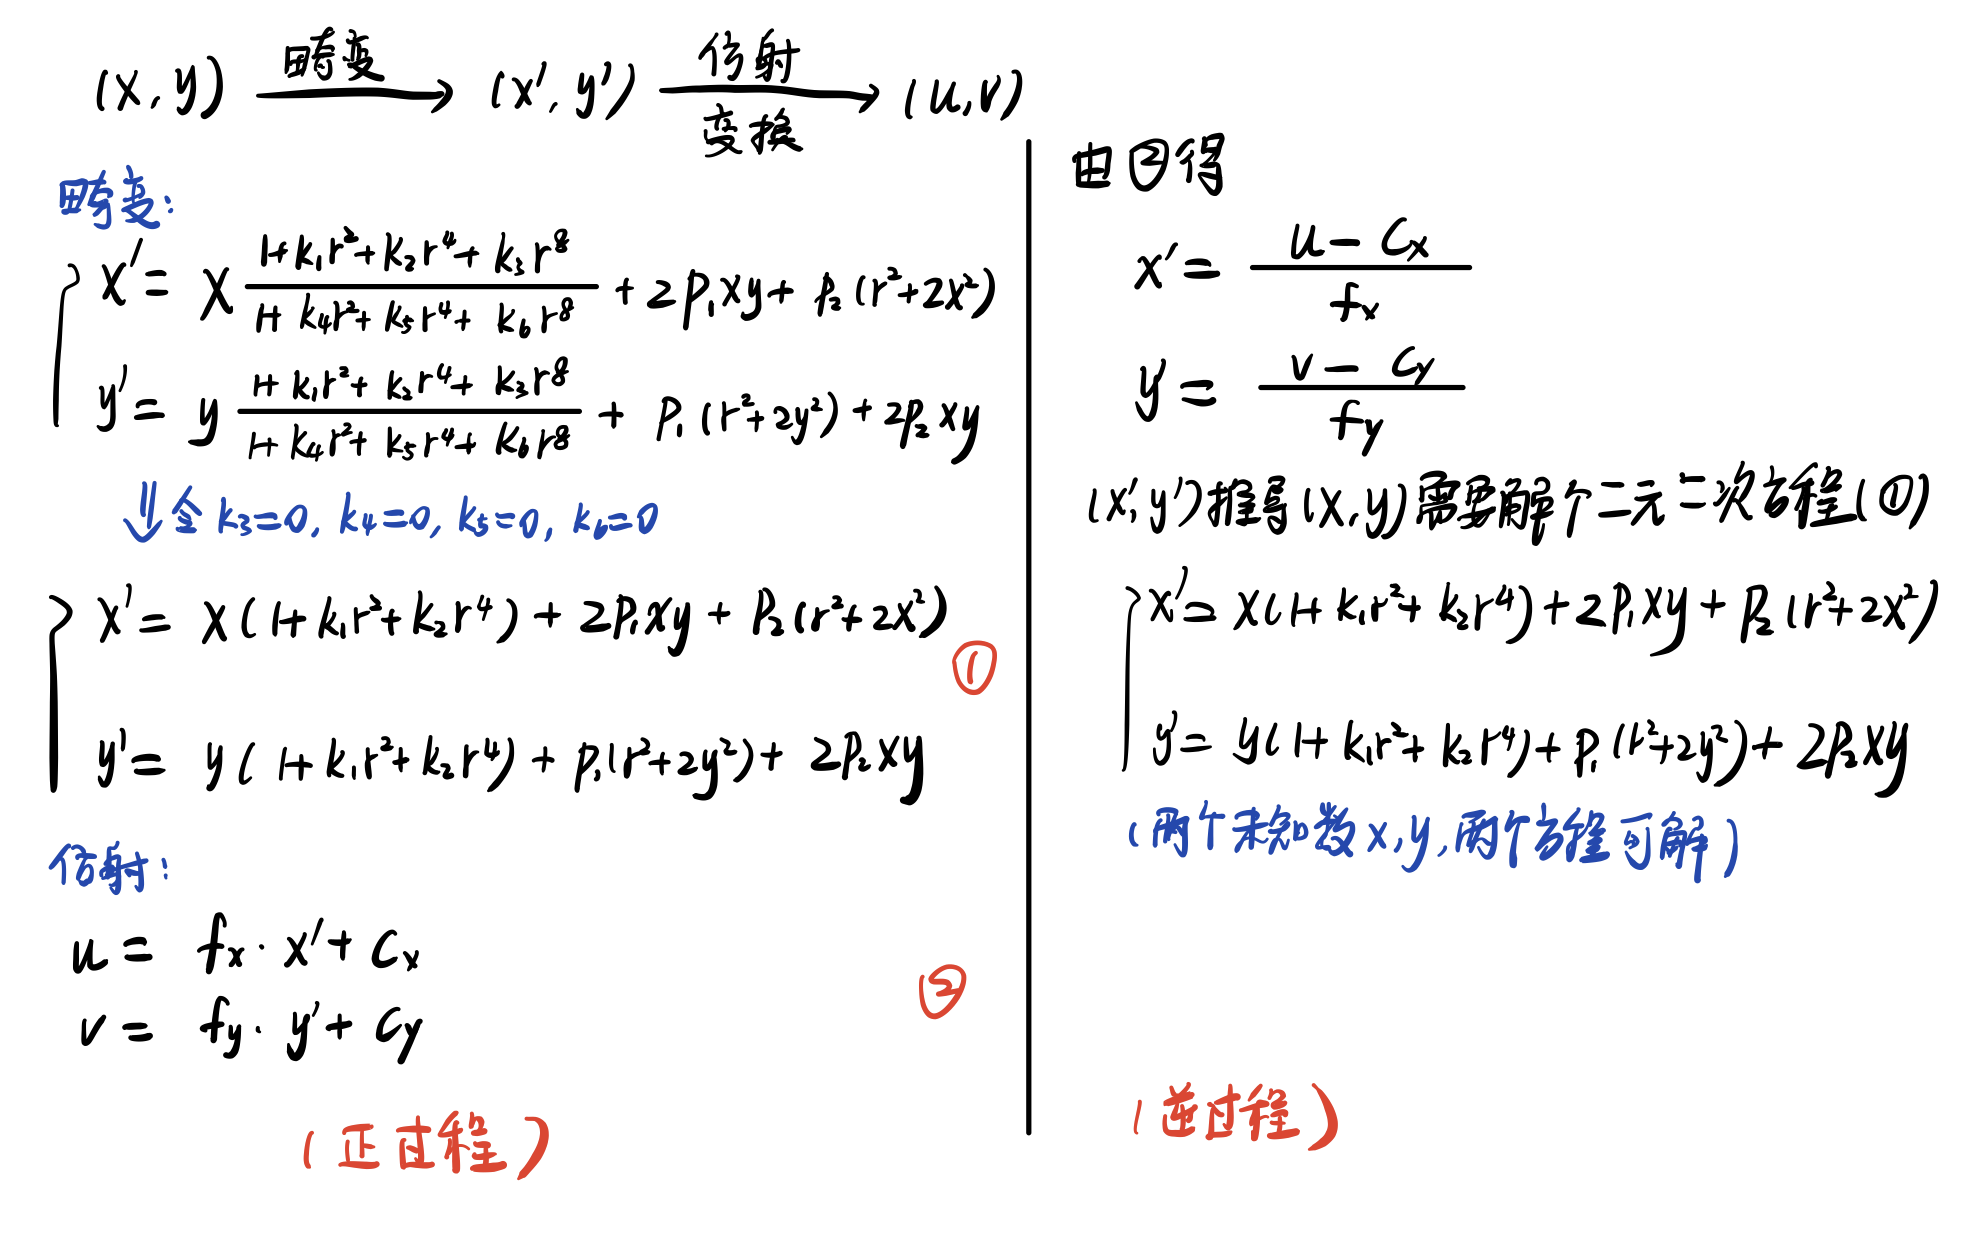 (x, y) 畸变→ (x′, y′) 仿射变换→ (u, v)
畸变:
x′ = x (1+k₁r²+k₂r⁴+k₃r⁸)/(1+k₄r²+k₅r⁴+k₆r⁸) + 2p₁xy + p₂(r²+2x²)
y′ = y (1+k₁r²+k₂r⁴+k₃r⁸)/(1+k₄r²+k₅r⁴+k₆r⁸) + p₁(r²+2y²) + 2p₂xy
⇓ 令 k₃=0, k₄=0, k₅=0, k₆=0
x′ = x(1+k₁r²+k₂r⁴) + 2p₁xy + p₂(r²+2x²)
①
y′ = y(1+k₁r²+k₂r⁴) + p₁(r²+2y²) + 2p₂xy
仿射:
u = fx · x′ + Cx
②
v = fy · y′ + Cy
(正过程)
由②得
x′ = (u − Cx)/fx
y′ = (v − Cy)/fy
(x′, y′)推导(x, y)需要解个二元二次方程(①)
x′ = x(1+k₁r²+k₂r⁴) + 2p₁xy + p₂(r²+2x²)
y′ = y(1+k₁r²+k₂r⁴) + p₁(r²+2y²) + 2p₂xy
(两个未知数x, y, 两个方程可解)
(逆过程)